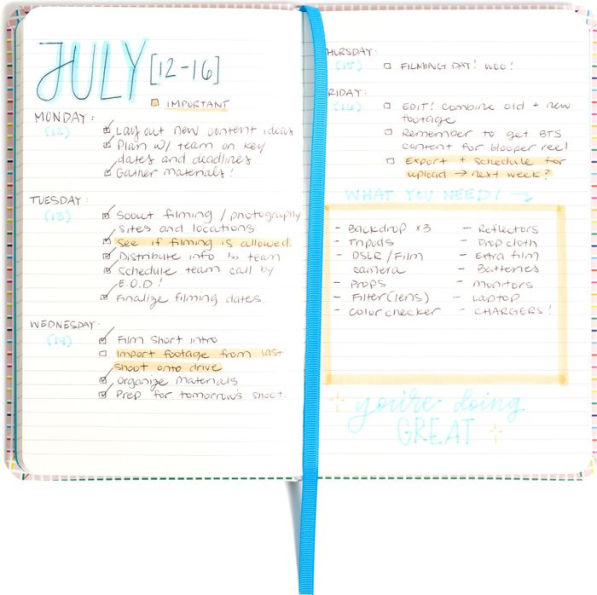 JULY [12-16]
IMPORTANT
MONDAY:
(12)
Lay out new content ideas
Plan w/ team on key
dates and deadlines
Gather materials!
TUESDAY:
(13)
Scout filming / photography
sites and locations
See if filming is allowed
Distribute info to team
Schedule team call by
E.O.D!
Finalize filming dates
WEDNESDAY:
(14)
Film short intro
Import footage from last
shoot onto drive
Organize materials
Prep for tomorrows shoot
HURSDAY:
(15)
FILMING DAY! WOO!
RIDAY:
(16)
EDIT! combine old + new
footage
Remember to get BTS
content for blooper reel
Export + schedule for
upload → next week?
WHAT YOU NEED! →
- Backdrop x3
- Tripods
- DSLR/Film
camera
- Props
- Filter(lens)
- color checker
- Reflectors
- Drop cloth
- Extra film
- Batteries
- monitors
- Laptop
- CHARGERS!
you're doing
GREAT